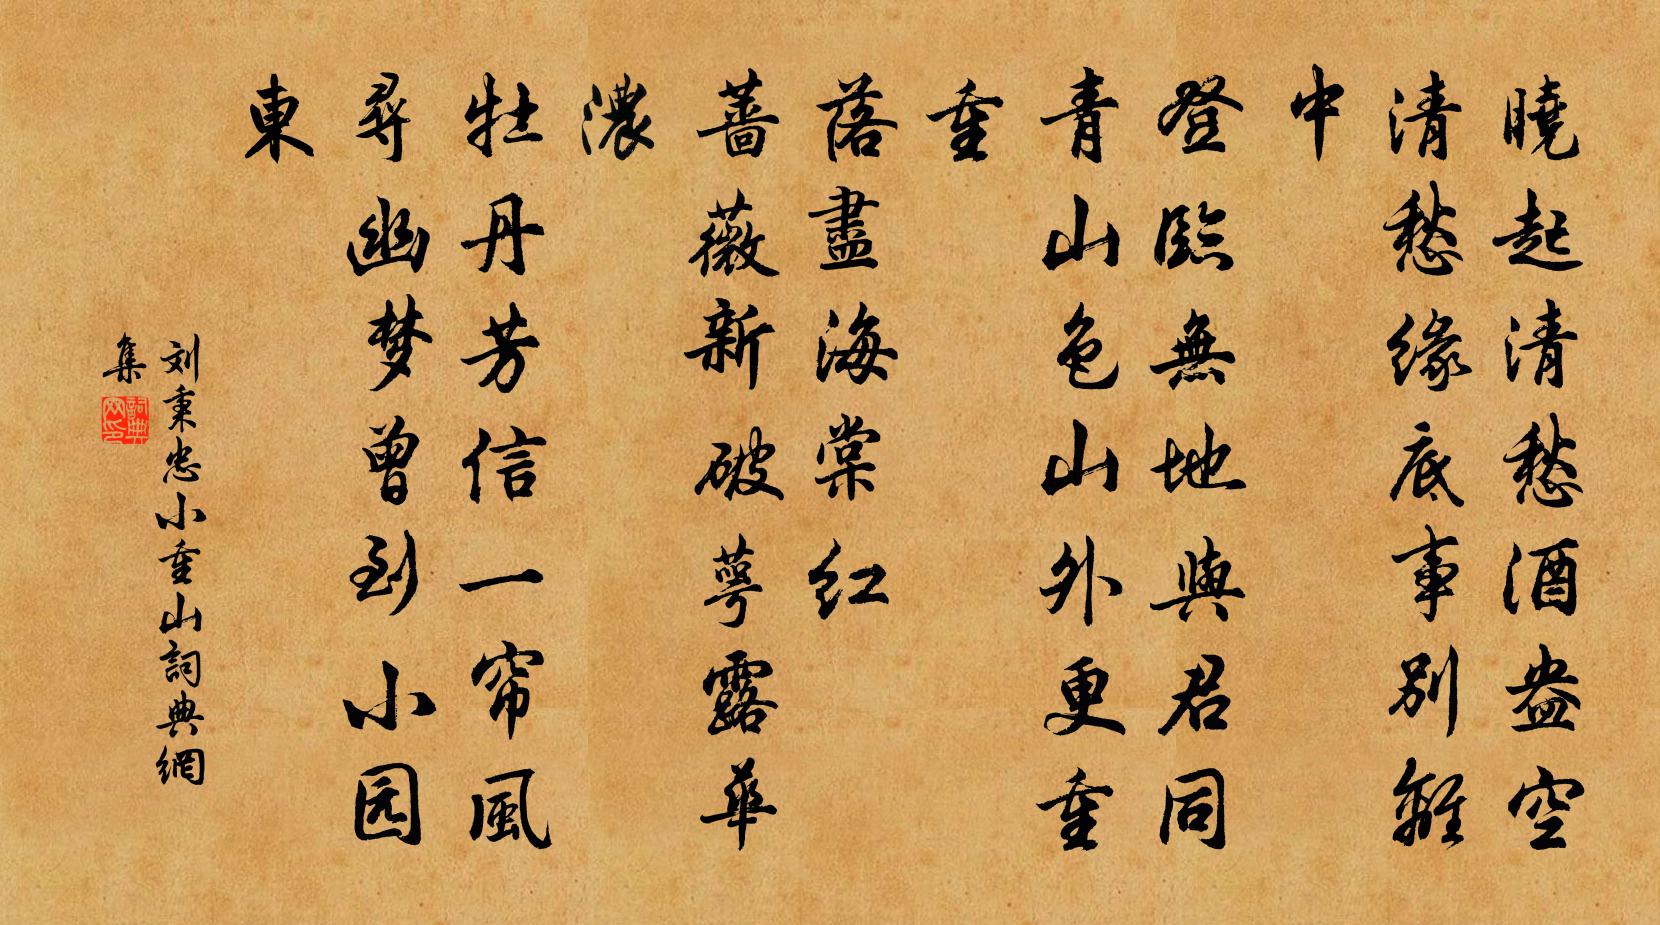 曉起清愁酒盎空
清愁緣底事別離
中
登臨無地與君同
青山色山外更重
重
落盡海棠红
薔薇新破萼露華
濃
牡丹芳信一帘風
尋幽梦曾到小园
東
刘秉忠小重山詞典網
集
詞典
网印